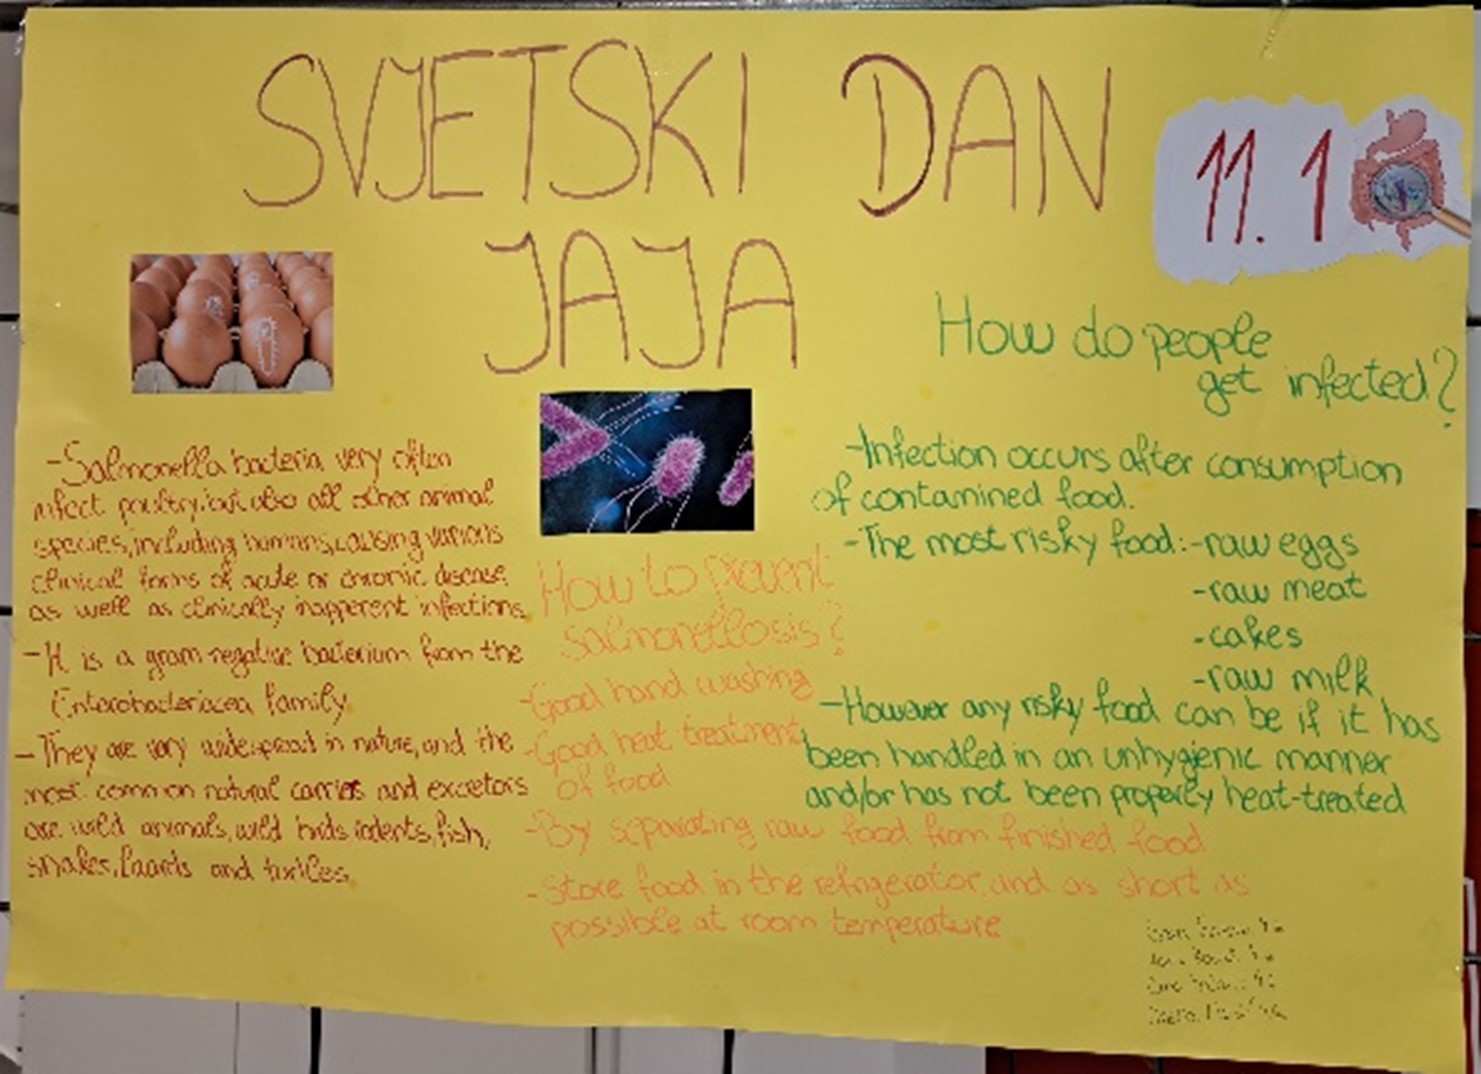 SVJETSKI DAN
JAJA
11.1
-Salmonella bacteria very often
infect poultry, but also all other animal
species, including humans, causing various
clinical forms of acute or chronic disease
as well as clinically inapperent infections
- It is a gram-negative bacterium from the
Enterobacteriacea family
- They are very widespread in nature, and the
most common natural carries and excretors
are wild animals, wild birds, rodents, fish,
snakes, lizards and turtles
How to prevent
salmonellosis?
-Good hand washing
-Good heat treatment
of food
-By separating raw food from finished food
-Store food in the refrigerator, and as short as
possible at room temperature
How do people
get infected?
-Infection occurs after consumption
of contamined food.
-The most risky food: -raw eggs
-raw meat
-cakes
-raw milk
-However any risky food can be if it has
been handled in an unhygienic manner
and/or has not been properly heat-treated